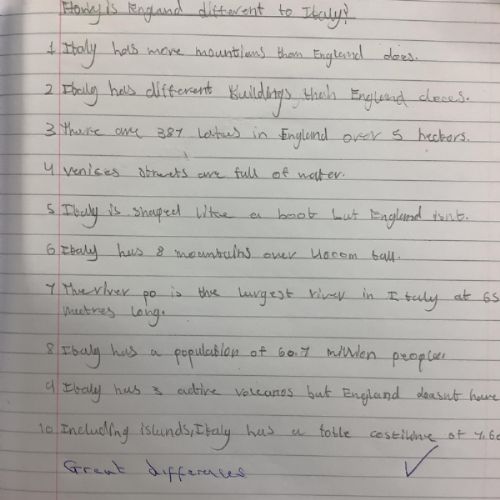 How is England different to Italy?
1 Italy has more mountians than England does.
2 Italy has different buildings than England does.
3 There are 387 in England over 5 hecters.
4 venices streets are full of water.
5 Italy is shaped like a boot but England isnt.
6 Italy has 8 mountains over 4000m tall.
7 The river po is the largest river in Italy at 65
metres long.
8 Italy has a population of 60.7 million people.
9 Italy has 3 active volcanos but England doesnt have
10 Including islands, Italy has a of 7.60
Great differences